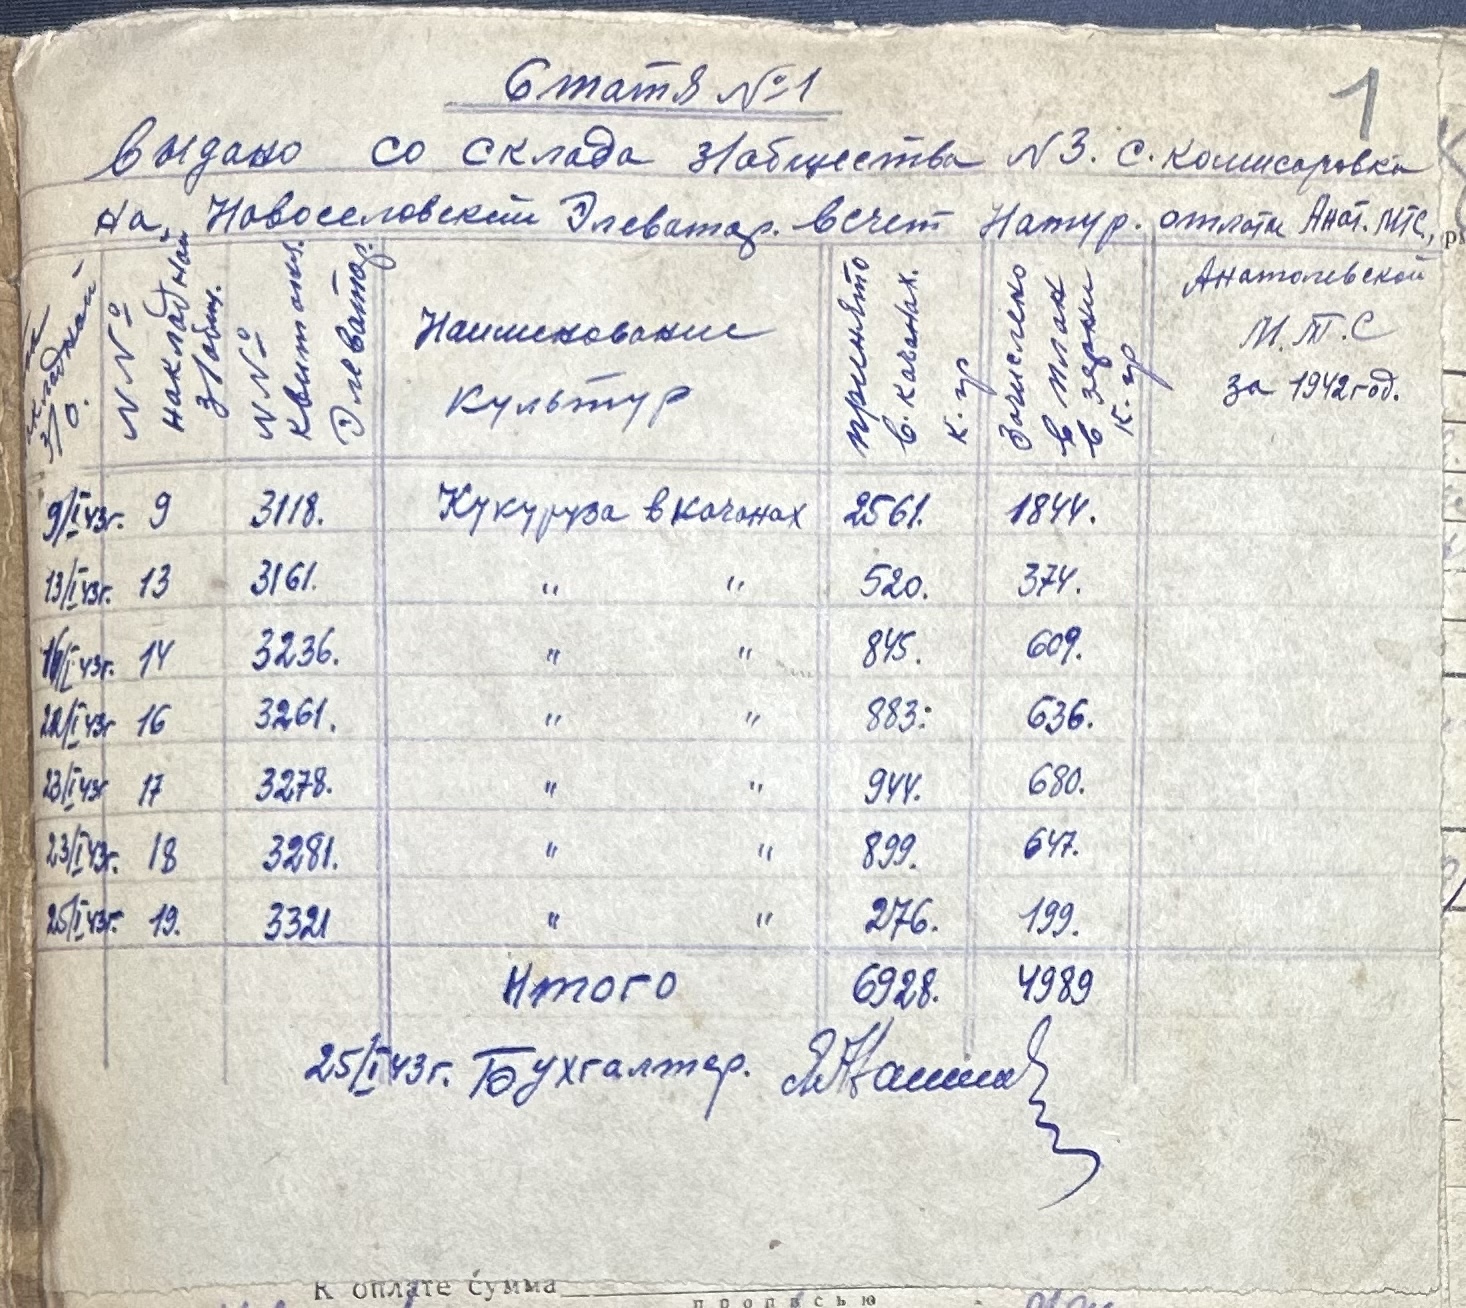 Статтяя №1
1
Выдано со склада з/общества №3. с. Комисаровка
на Новоселовский Элеватор. в счет Натур. оплаты Анат. МТС.,
накладной з/о. №№ накладной з/общ. №№ квитанц. Элеватор. Наименование культур принято в. качанах. к. гр Зачислено в план в зерни к. гр Анатолевской М.Т.С за 1942 год.
9/I 43г. 9 3118. Кукуруза в качанах 2561. 1844.
13/I 43г. 13 3161. " " 520. 374.
16/I 43г. 14 3236. " " 845. 609.
22/I 43г 16 3261. " " 883. 636.
23/I 43г 17 3278. " " 944. 680.
23/I 43г. 18 3281. " " 899. 647.
25/I 43г. 19. 3321 " " 276. 199.
Итого 6928. 4989
25/I 43г. Бухгалтер.
К оплате сумма
прописью